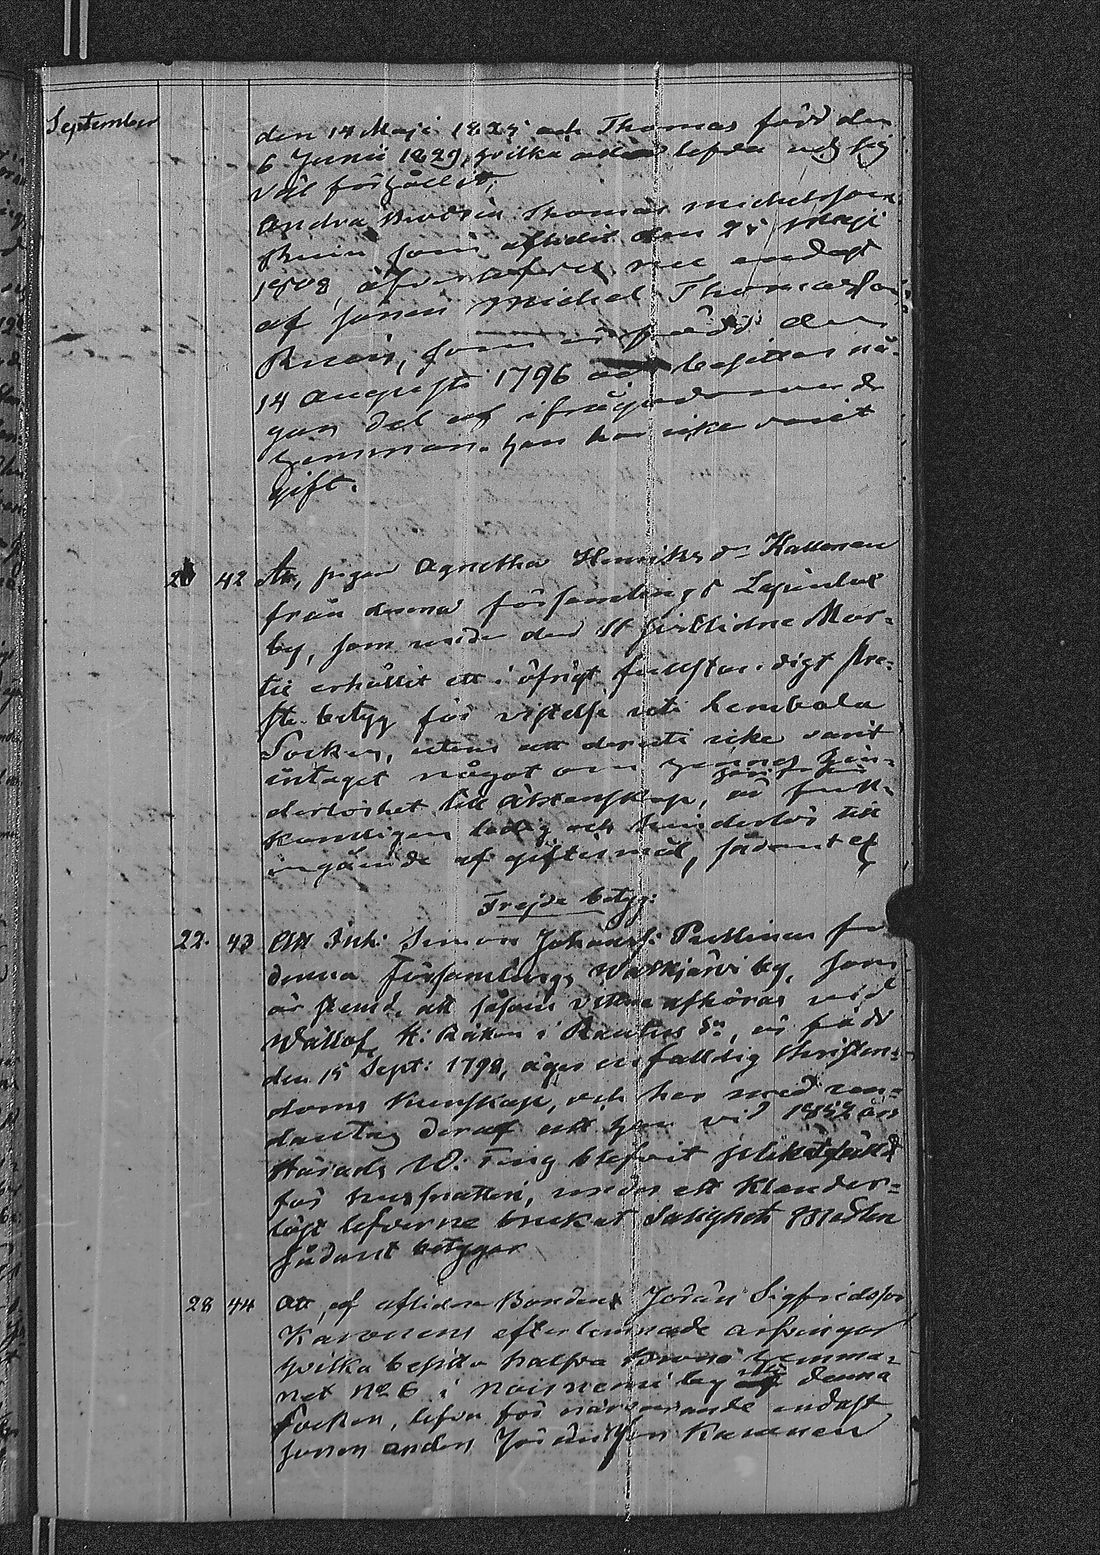 September
den 14 Maji 1825 och Thomas född den
6 Junii 1829, hvilka lefva och sig
väl förhållit,
Andra Brodren Thomas Michelsson
Ruin som aflidit den 25 Maji
1808, efterlefves nu endast
af sonen Michel Thomasson
Ruin, som är född den
14 Augusti 1796 och besitter nå-
gon del af ifrågavarande
hemman. han har icke varit
gift.
42 Att, pigan Agnetha Henriksd:r Kallonen
från denna församlings Lapinlax
by, som under den sistlidne Mar-
tii erhållit ett i öfrigt fullstän-digt Pre-
ste betyg för vistelse uti Lembala
Socken, utan att deruti icke varit
intaget något om hennes hin-
derlöshet till Äktenskap, är full-
komligen ledig och hinderlös till
ingående af giftermål, sådant et
Frejde betyg:
22. 43 Att Inh: Simon Johansf: Pullinen fr
denna Församlings Walkjärvi by, som
är stemd, att såsom vittne afhöras vid
Wällof. H: Rätten i Rautus S:n, är född
den 15 Sept: 1798, äger enfalldig Christen-
doms kunskap, och har med un-
dantag deraf att han vid 1852 års
Härads W: Ting blifvit pliktfälld
för snusfnatteri, under ett klander-
löst lefverne brukat Salighets Medlen
Sådant betygar
28 44 Att, af aflidne Bonden Jöran Sigfridsson
Karonens efterlemnade arfvingar
hvilka besitta halfva Krono hemma-
net No 6 i Noisniemi by uti denna
Socken, lefva för närvarande endast
sonen anders Jöransson Karonen